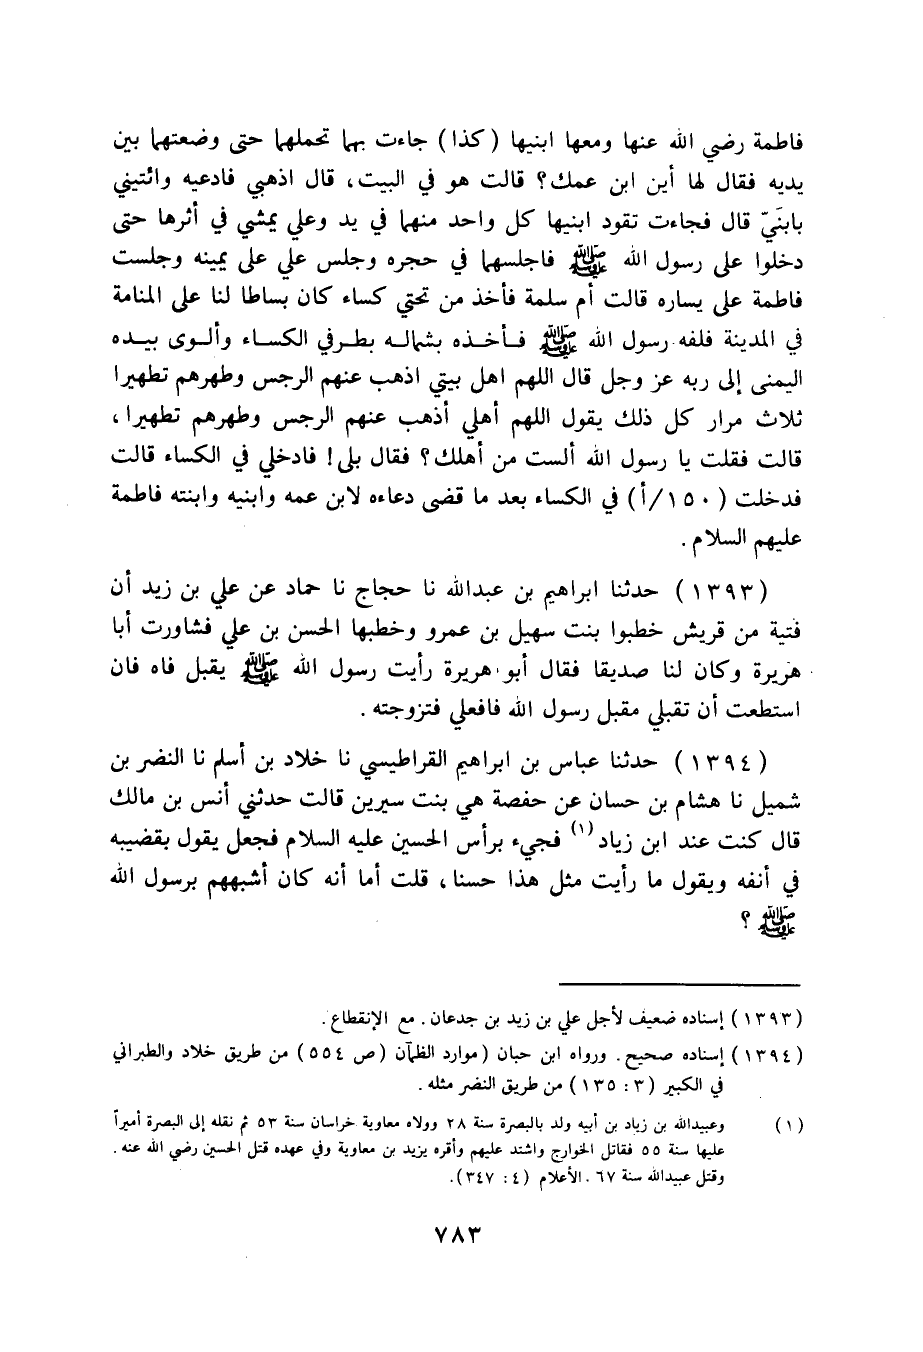 فاطمة رضي الله عنها ومعها ابنيها (كذا) جاءت بهما تحملهما حتى وضعتهما بين
يديه فقال لها أين ابن عمك؟ قالت هو في البيت، قال اذهبي فادعيه وائتيني
بابنَيّ قال فجاءت تقود ابنيها كل واحد منهما في يد وعلي يمشي في أثرها حتى
دخلوا على رسول الله ﷺ فاجلسهما في حجره وجلس علي على يمينه وجلست
فاطمة على يساره قالت أم سلمة فأخذ من تحتي كساء كان بساطا لنا على المنامة
في المدينة فلفه رسول الله ﷺ فأخذه بشماله بطرفي الكساء وألوى بيده
اليمنى إلى ربه عز وجل قال اللهم اهل بيتي اذهب عنهم الرجس وطهرهم تطهيرا
ثلاث مرار كل ذلك يقول اللهم أهلي أذهب عنهم الرجس وطهرهم تطهيرا،
قالت فقلت يا رسول الله ألست من أهلك؟ فقال بلى! فادخلي في الكساء قالت
فدخلت (١٥٠/أ) في الكساء بعد ما قضى دعاءه لابن عمه وابنيه وابنته فاطمة
عليهم السلام.
(١٣٩٣) حدثنا ابراهيم بن عبدالله نا حجاج نا حماد عن علي بن زيد أن
فتية من قريش خطبوا بنت سهيل بن عمرو وخطبها الحسن بن علي فشاورت أبا
هريرة وكان لنا صديقا فقال أبو هريرة رأيت رسول الله ﷺ يقبل فاه فان
استطعت أن تقبلي مقبل رسول الله فافعلي فتزوجته.
(١٣٩٤) حدثنا عباس بن ابراهيم القراطيسي نا خلاد بن أسلم نا النضر بن
شميل نا هشام بن حسان عن حفصة هي بنت سيرين قالت حدثني أنس بن مالك
قال كنت عند ابن زياد(١) فجيء برأس الحسين عليه السلام فجعل يقول بقضيبه
في أنفه ويقول ما رأيت مثل هذا حسنا، قلت أما أنه كان أشبههم برسول الله
ﷺ ؟
(١٣٩٣) إسناده ضعيف لأجل علي بن زيد بن جدعان. مع الإنقطاع.
(١٣٩٤) إسناده صحيح. ورواه ابن حبان (موارد الظمآن (ص ٥٥٤) من طريق خلاد والطبراني
في الكبير (٣: ١٣٥) من طريق النضر مثله.
(١) وعبيدالله بن زياد بن أبيه ولد بالبصرة سنة ٢٨ وولاه معاوية خراسان سنة ٥٣ ثم نقله إلى البصرة أميراً
عليها سنة ٥٥ فقاتل الخوارج واشتد عليهم وأقره يزيد بن معاوية وفي عهده قتل الحسين رضي الله عنه.
وقتل عبيدالله سنة ٦٧. الأعلام (٤: ٣٤٧).
٧٨٣